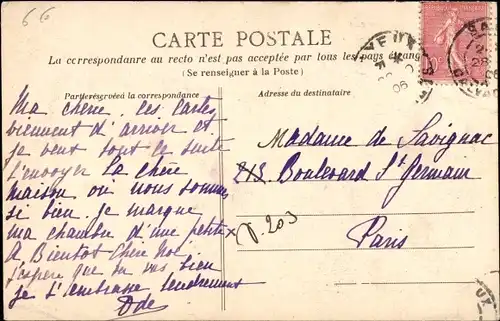 66
CARTE POSTALE
La correspondance au recto n'est pas acceptée par tous les pays étrang
(Se renseigner à la Poste)
Partie réservée à la correspondance
Adresse du destinataire
Ma chérie ces cartes
viennent d'arriver et
je veux tout de suite
t'envoyer la chère
maison où nous sommes
si bien. Je marque
ma chambre d'une petite x
A Bientôt chère
J'espère que tu vas bien
je t'embrasse tendrement
Ode
Madame de Savignac
213 Boulevard St Germain
V. 203
Paris